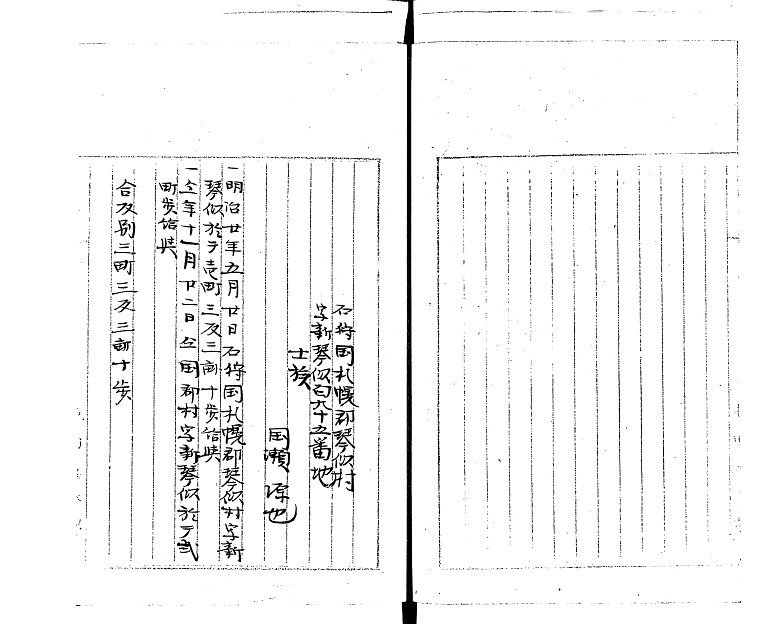 石狩国札幌郡琴似村
字新琴似百九十五番地
士族
国瀬源也
一明治廿年五月廿日石狩国札幌郡琴似村字新
琴似於テ壱町三反三畝十歩給與
一仝年十一月廿二日仝国郡村字新琴似於テ弐
町歩給與
合反別三町三反三畝十歩